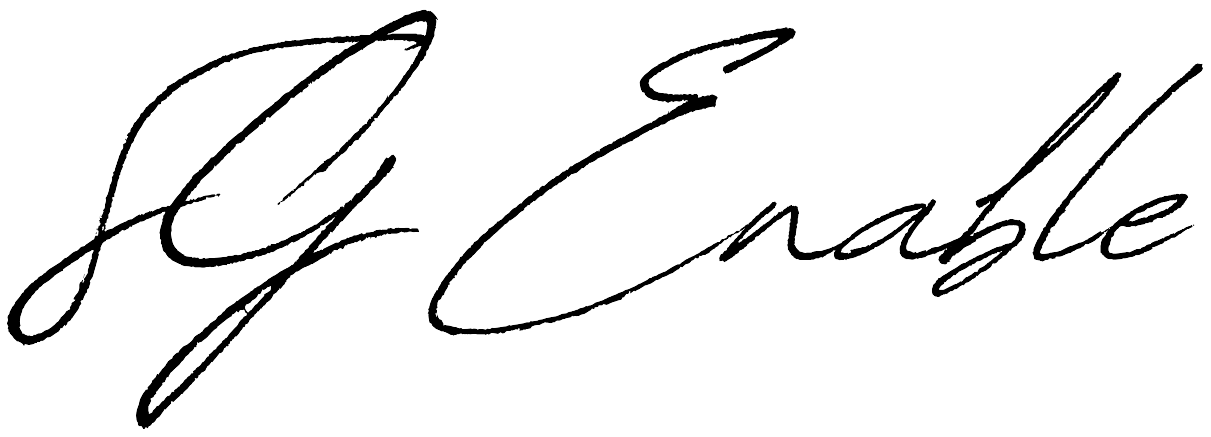 SG Enable